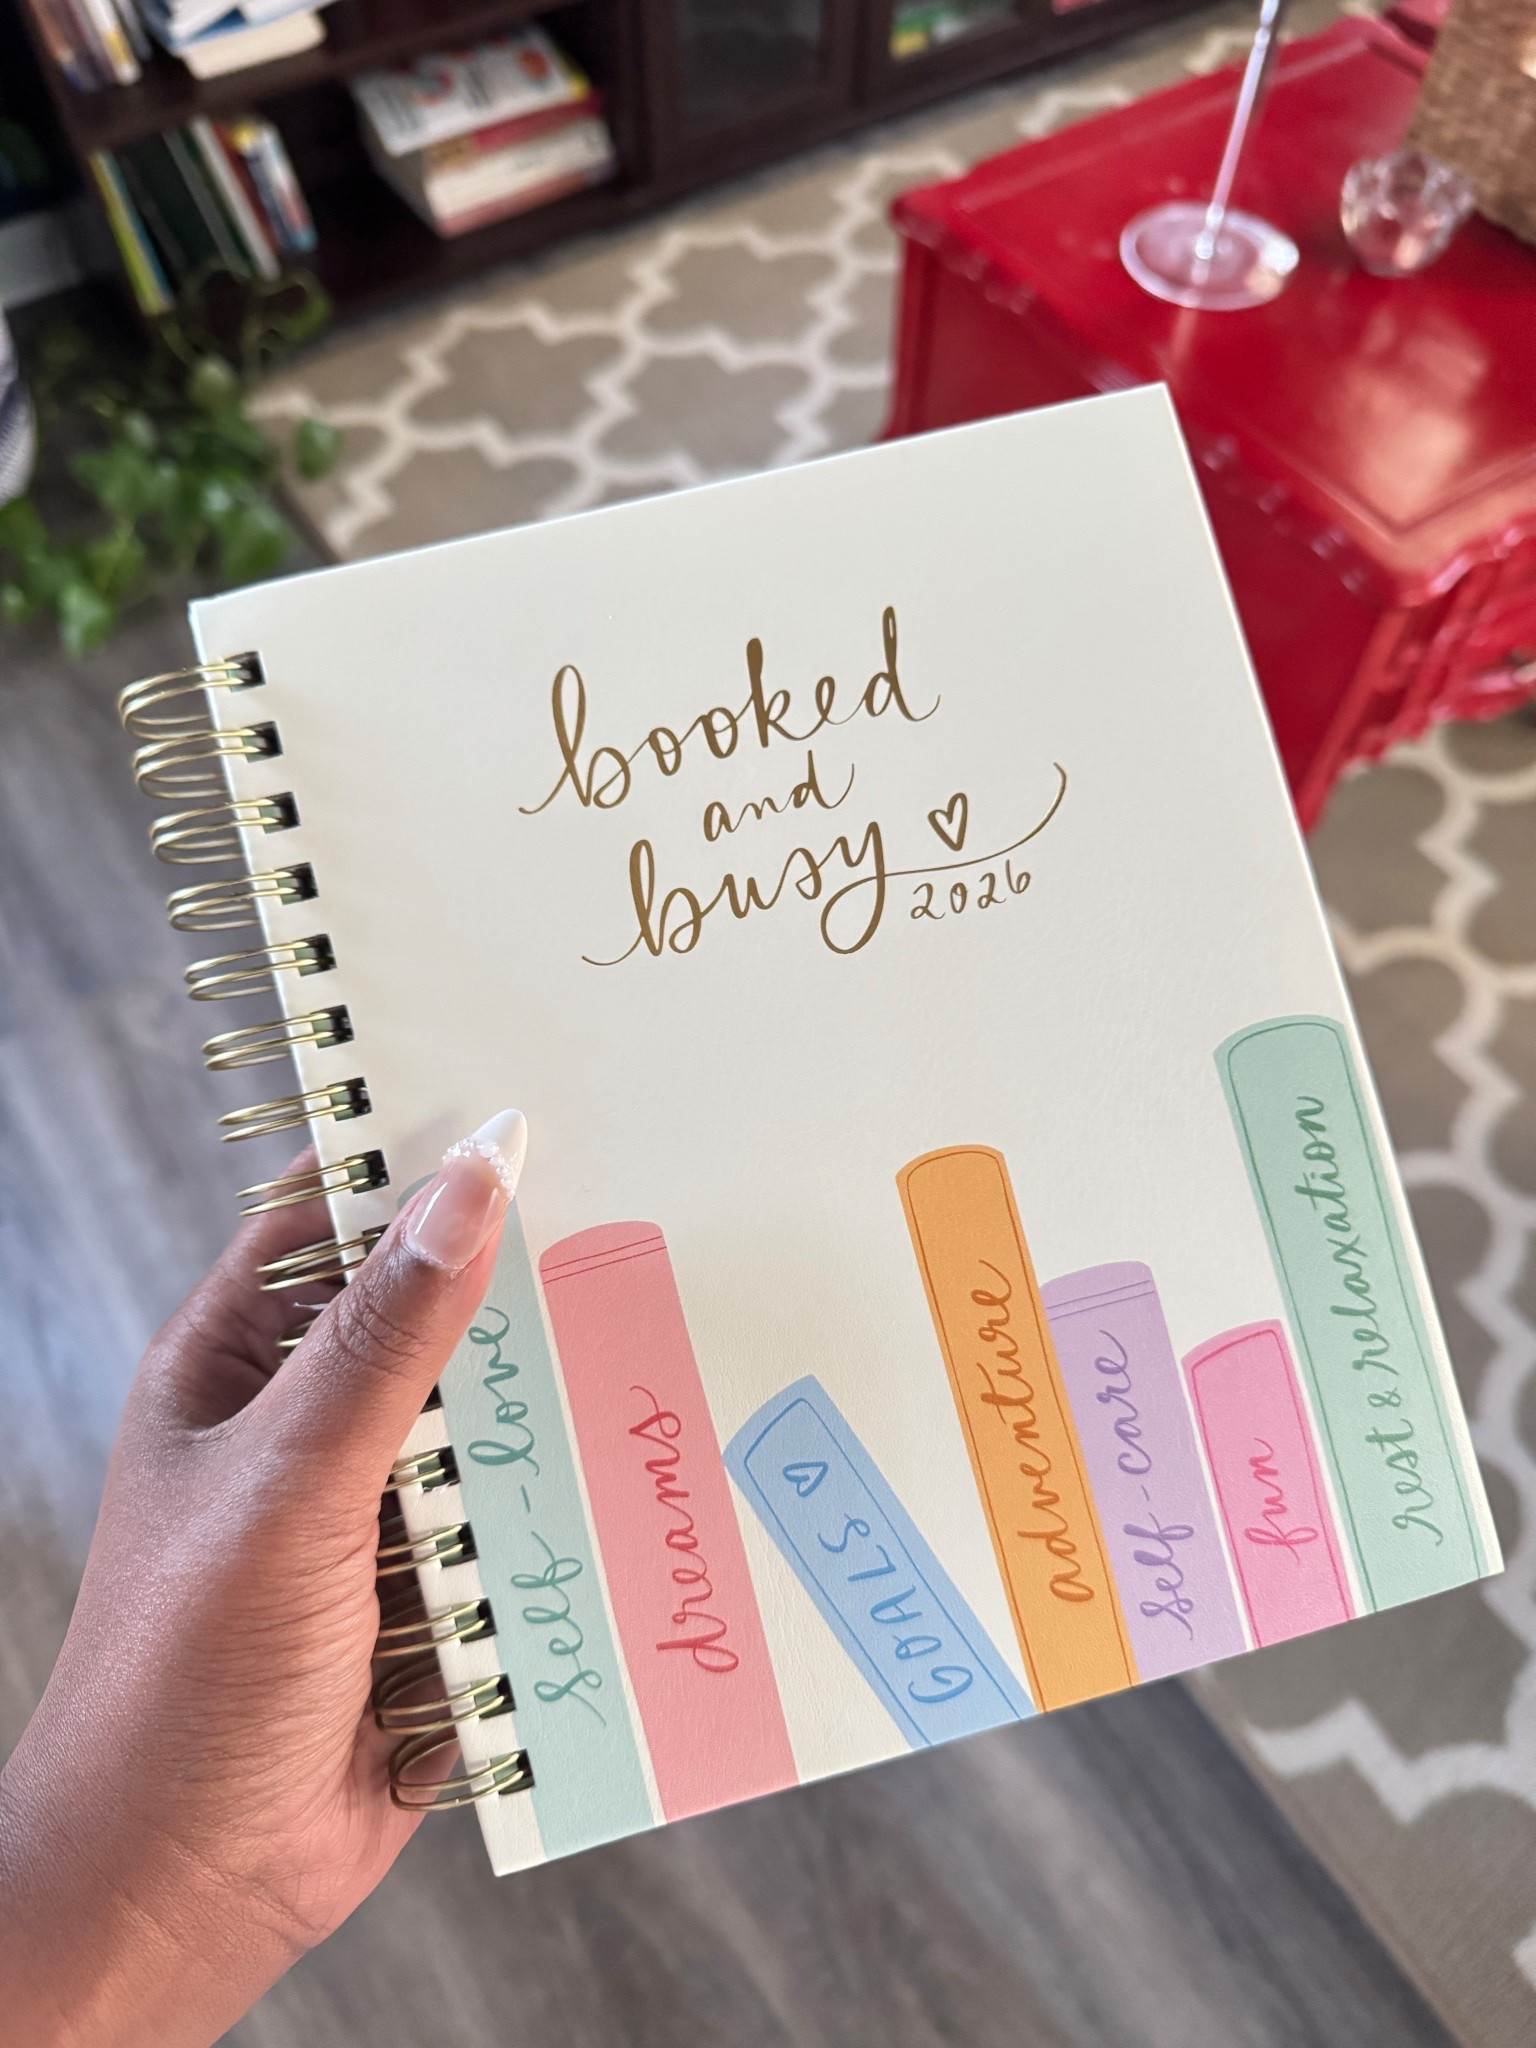 booked
and
busy
2026
self-love
dreams
GOALS
adventure
self-care
fun
rest & relaxation